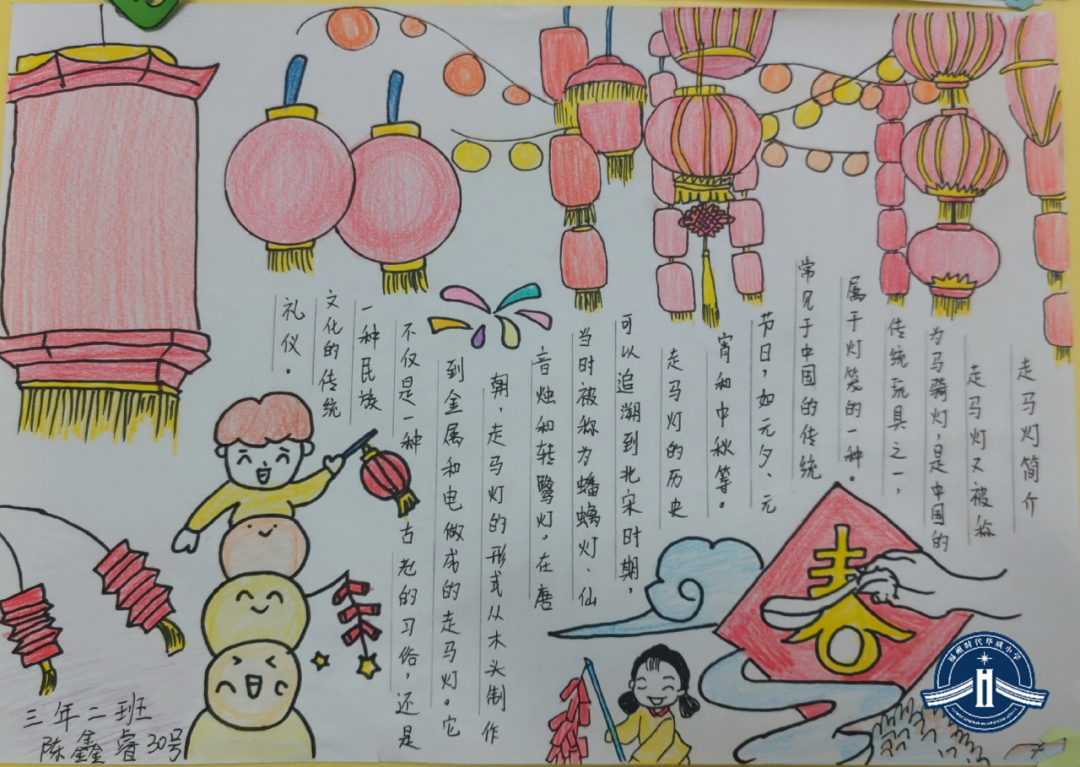 走马灯简介
走马灯又被称
为马骑灯，是中国的
传统玩具之一，
属于灯笼的一种。
常见于中国的传统
节日，如元夕、元
宵和中秋等。
走马灯的历史
可以追溯到北宋时期，
当时被称为蟠螭灯、仙
音烛和转鹭灯。在唐
朝，走马灯的形式从木头制作
到金属和电做成的走马灯。它
不仅是一种古老的习俗，还是
一种民族
文化的传统
礼仪。
春
三年二班
陈鑫睿30号
福州时代华威小学